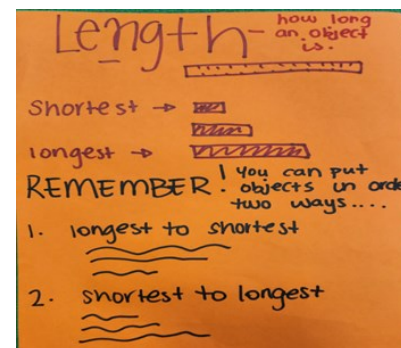 Length - how long
an object
is.
Shortest →
longest →
REMEMBER! you can put
objects in orde
two ways....
1. longest to shortest
2. shortest to longest